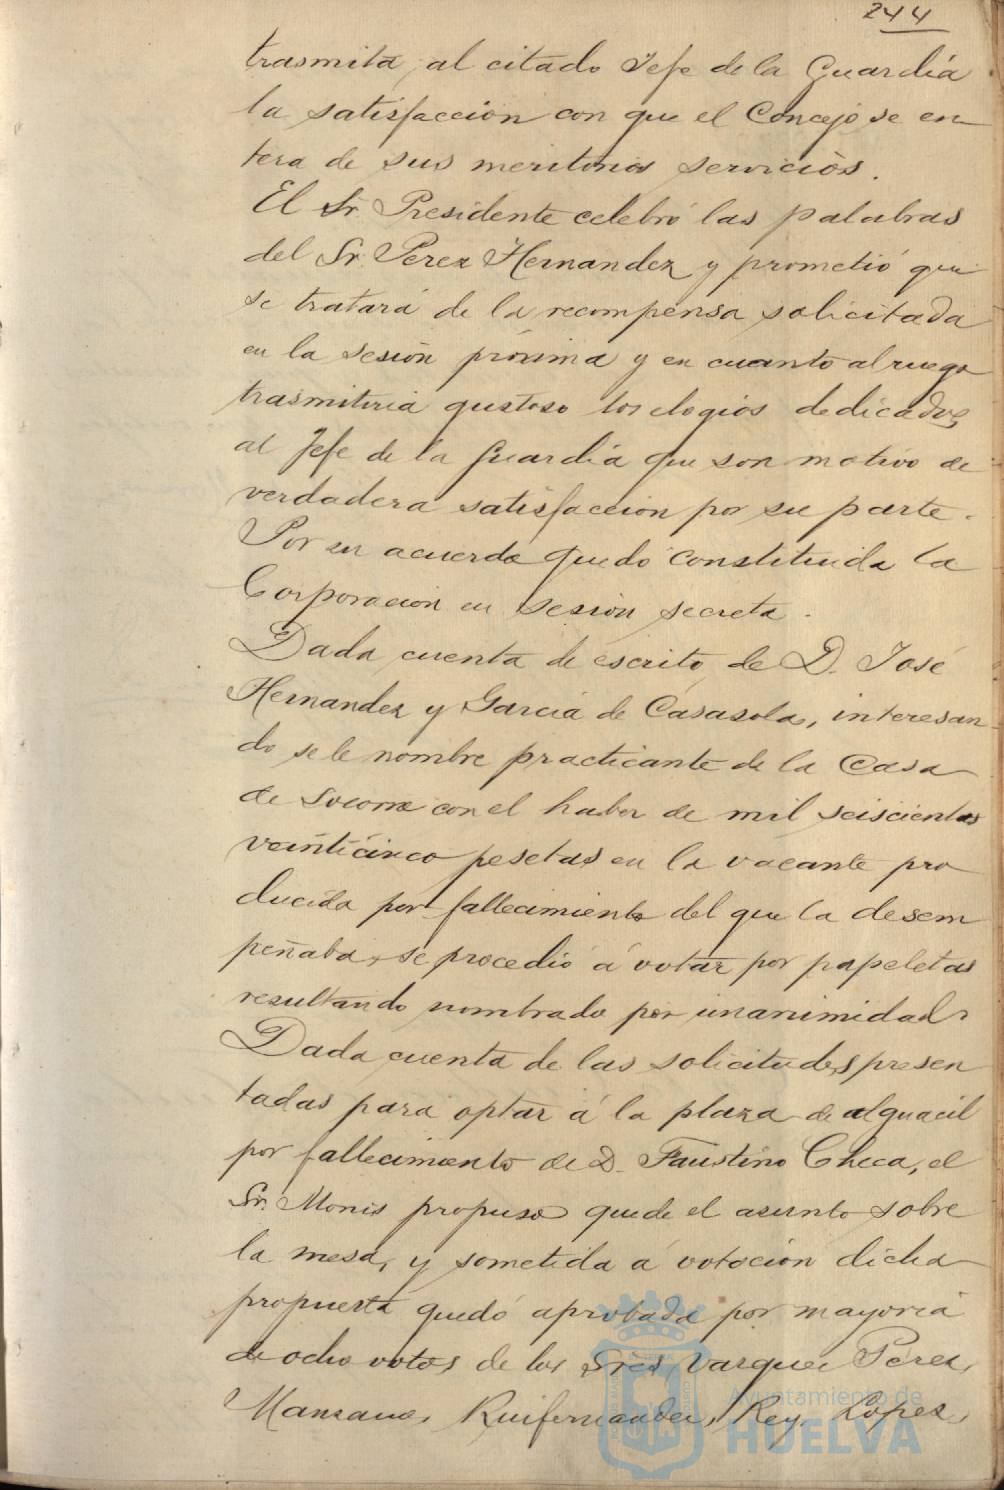 244
trasmita al citado Jefe de la Guardia
la satisfacción con que el Concejo se en
tera de sus meritorios servicios.
El Sr. Presidente celebró las palabras
del Sr. Perez Hernandez y prometió que
se tratará de la recompensa solicitada
en la sesión próxima y en cuanto al ruego
trasmitiria gustoso los elogios dedicados
al Jefe de la Guardia que son motivo de
verdadera satisfaccion por su parte.
Por su acuerdo quedó constituida la
Corporacion en sesión secreta.
Dada cuenta de escrito de D. José
Hernandez y Garcia de Casasola, interesan
do se le nombre practicante de la Casa
de Socorro con el haber de mil seiscientas
veinticinco pesetas en la vacante pro
ducida por fallecimiento del que la desem
peñaba, se procedió á votar por papeletas
resultando nombrado por unanimidad.
Dada cuenta de las solicitudes presen
tadas para optar á la plaza de alguacil
por fallecimiento de D. Faustino Checa, el
Sr. Monis propuso quede el asunto sobre
la mesa, y sometida á votación dicha
propuesta quedó aprobada por mayoria
de ocho votos de los Sres Vazquez Perez,
Manzano, Ruifernandez, Rey, Lopez,
Ayuntamiento de
HUELVA